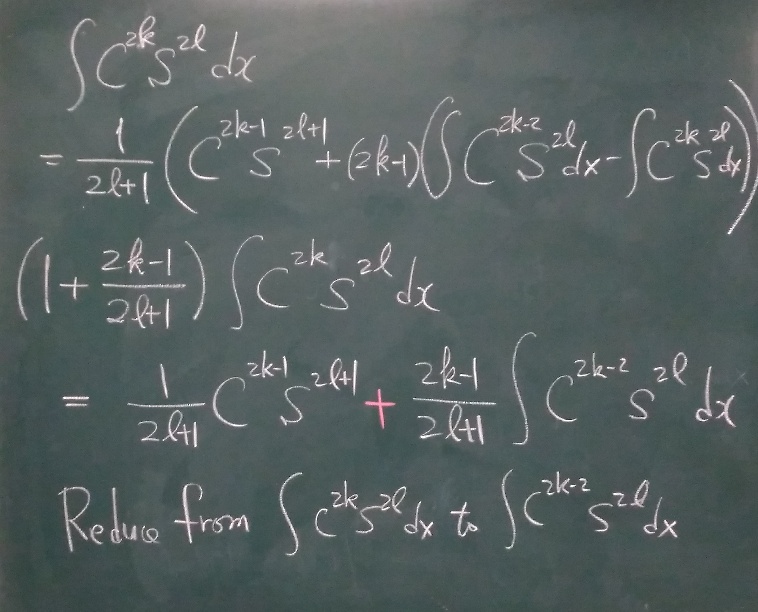 ∫C^{2k}S^{2l}dx
= \frac{1}{2l+1}(C^{2k-1}S^{2l+1}+(2k-1)(∫C^{2k-2}S^{2l}dx-∫C^{2k}S^{2l}dx))
(1+\frac{2k-1}{2l+1})∫C^{2k}S^{2l}dx
= \frac{1}{2l+1}C^{2k-1}S^{2l+1}+\frac{2k-1}{2l+1}∫C^{2k-2}S^{2l}dx
Reduce from ∫C^{2k}S^{2l}dx to ∫C^{2k-2}S^{2l}dx